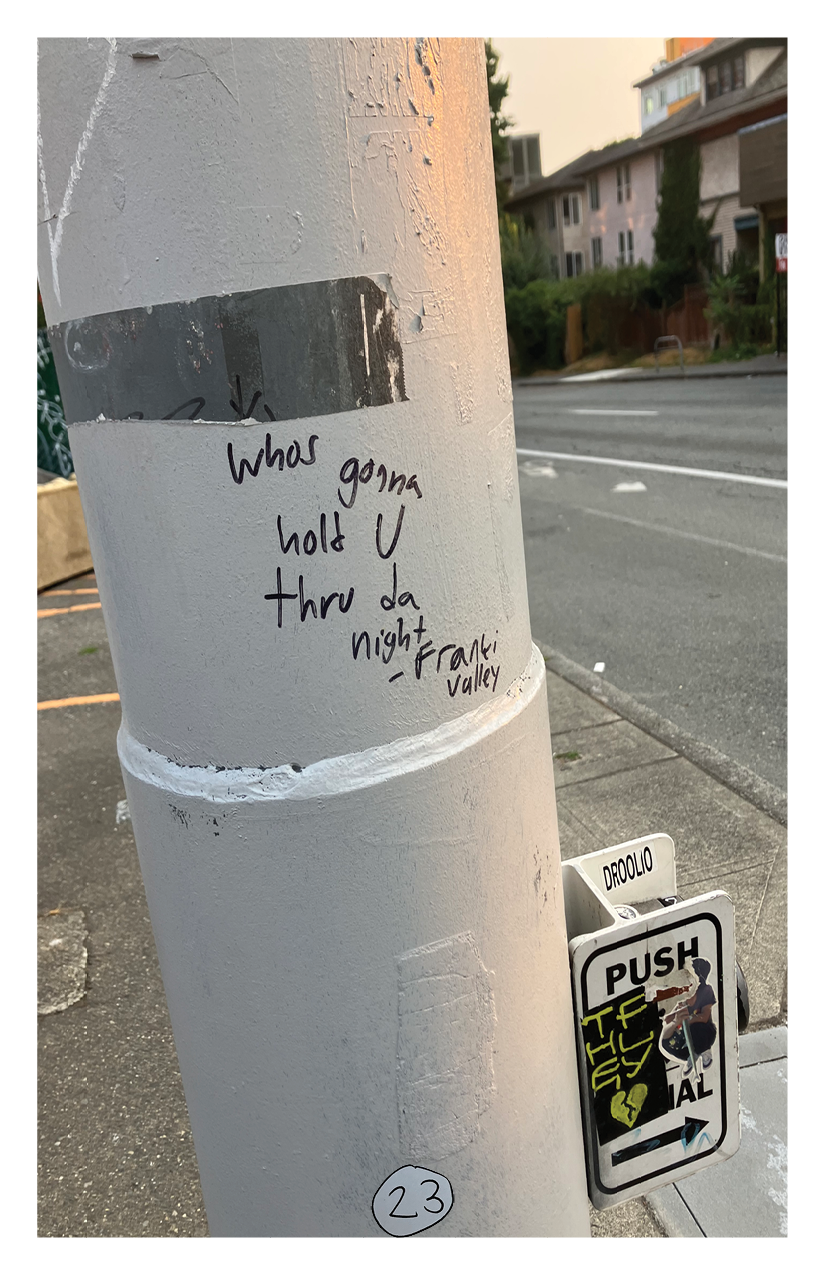 whos
gonna
hold U
thru da
night
- Franki
valley
DROOLIO
PUSH
TF
HU
EY
IAL
23